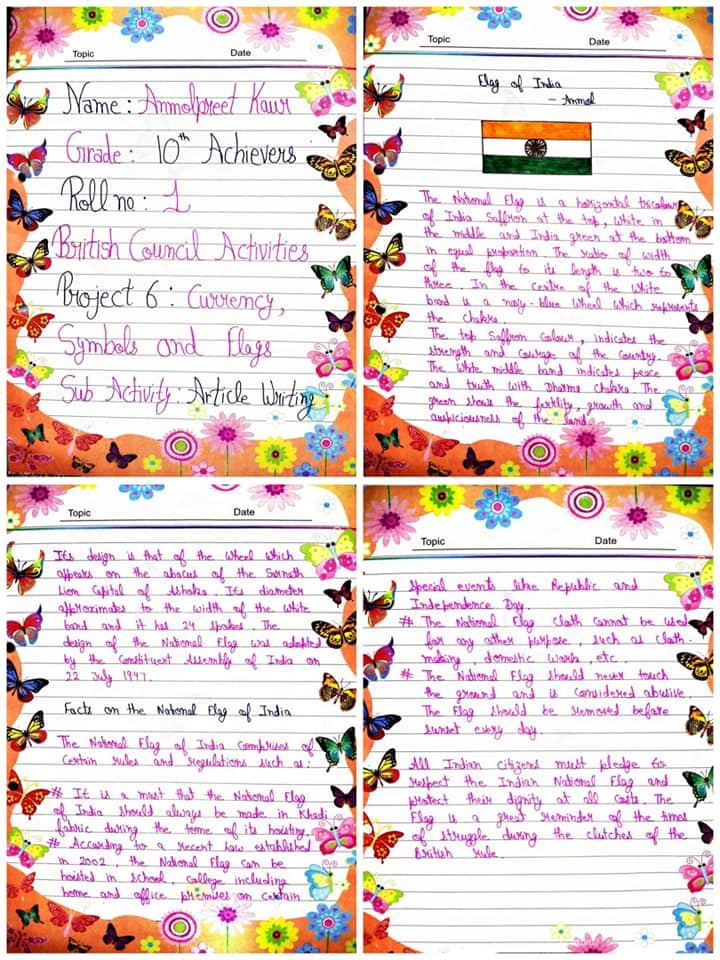 Topic Date
Name: Anmolpreet Kaur
Grade: 10th Achievers
Roll no: 1
British Council Activities
Project 6: Currency,
Symbols and Flags
Sub Activity: Article Writing
Topic Date
Flag of India
- Anmol
The National Flag is a horizontal tricolour
of India Saffron at the top, white in
the middle and India green at the bottom
in equal proportion. The ratio of width
of the flag to its length is two to
three. In the centre of the white
band is a navy-blue wheel which represents
the chakra.
The top Saffron colour, indicates the
strength and courage of the country.
The white middle band indicates peace
and truth with Dharma Chakra. The
green shows the fertility, growth and
auspiciousness of the land.
Topic Date
Its design is that of the wheel which
appears on the abacus of the Sarnath
Lion Capital of Ashoka. Its diameter
approximates to the width of the white
band and it has 24 spokes. The
design of the National Flag was adopted
by the Constituent Assembly of India on
22 July 1947.
Facts on the National Flag of India
The National Flag of India comprises of
certain rules and regulations such as:
# It is a must that the National Flag
of India should always be made in Khadi
fabric during the teme of its hoisting.
# According to a recent law established
in 2002, the National Flag can be
hoisted in school, college including
home and office premises on certain
Topic Date
special events like Republic and
Independence Day.
# The National Flag cloth cannot be used
for any other purpose, such as cloth-
making, domestic work, etc.
# The National Flag should never touch
the ground and is considered abusive.
The Flag should be removed before
sunset every day.
All Indian citizens must pledge to
respect the Indian National Flag and
protect their dignity at all costs. The
Flag is a great reminder of the times
of struggle during the clutches of the
British rule.